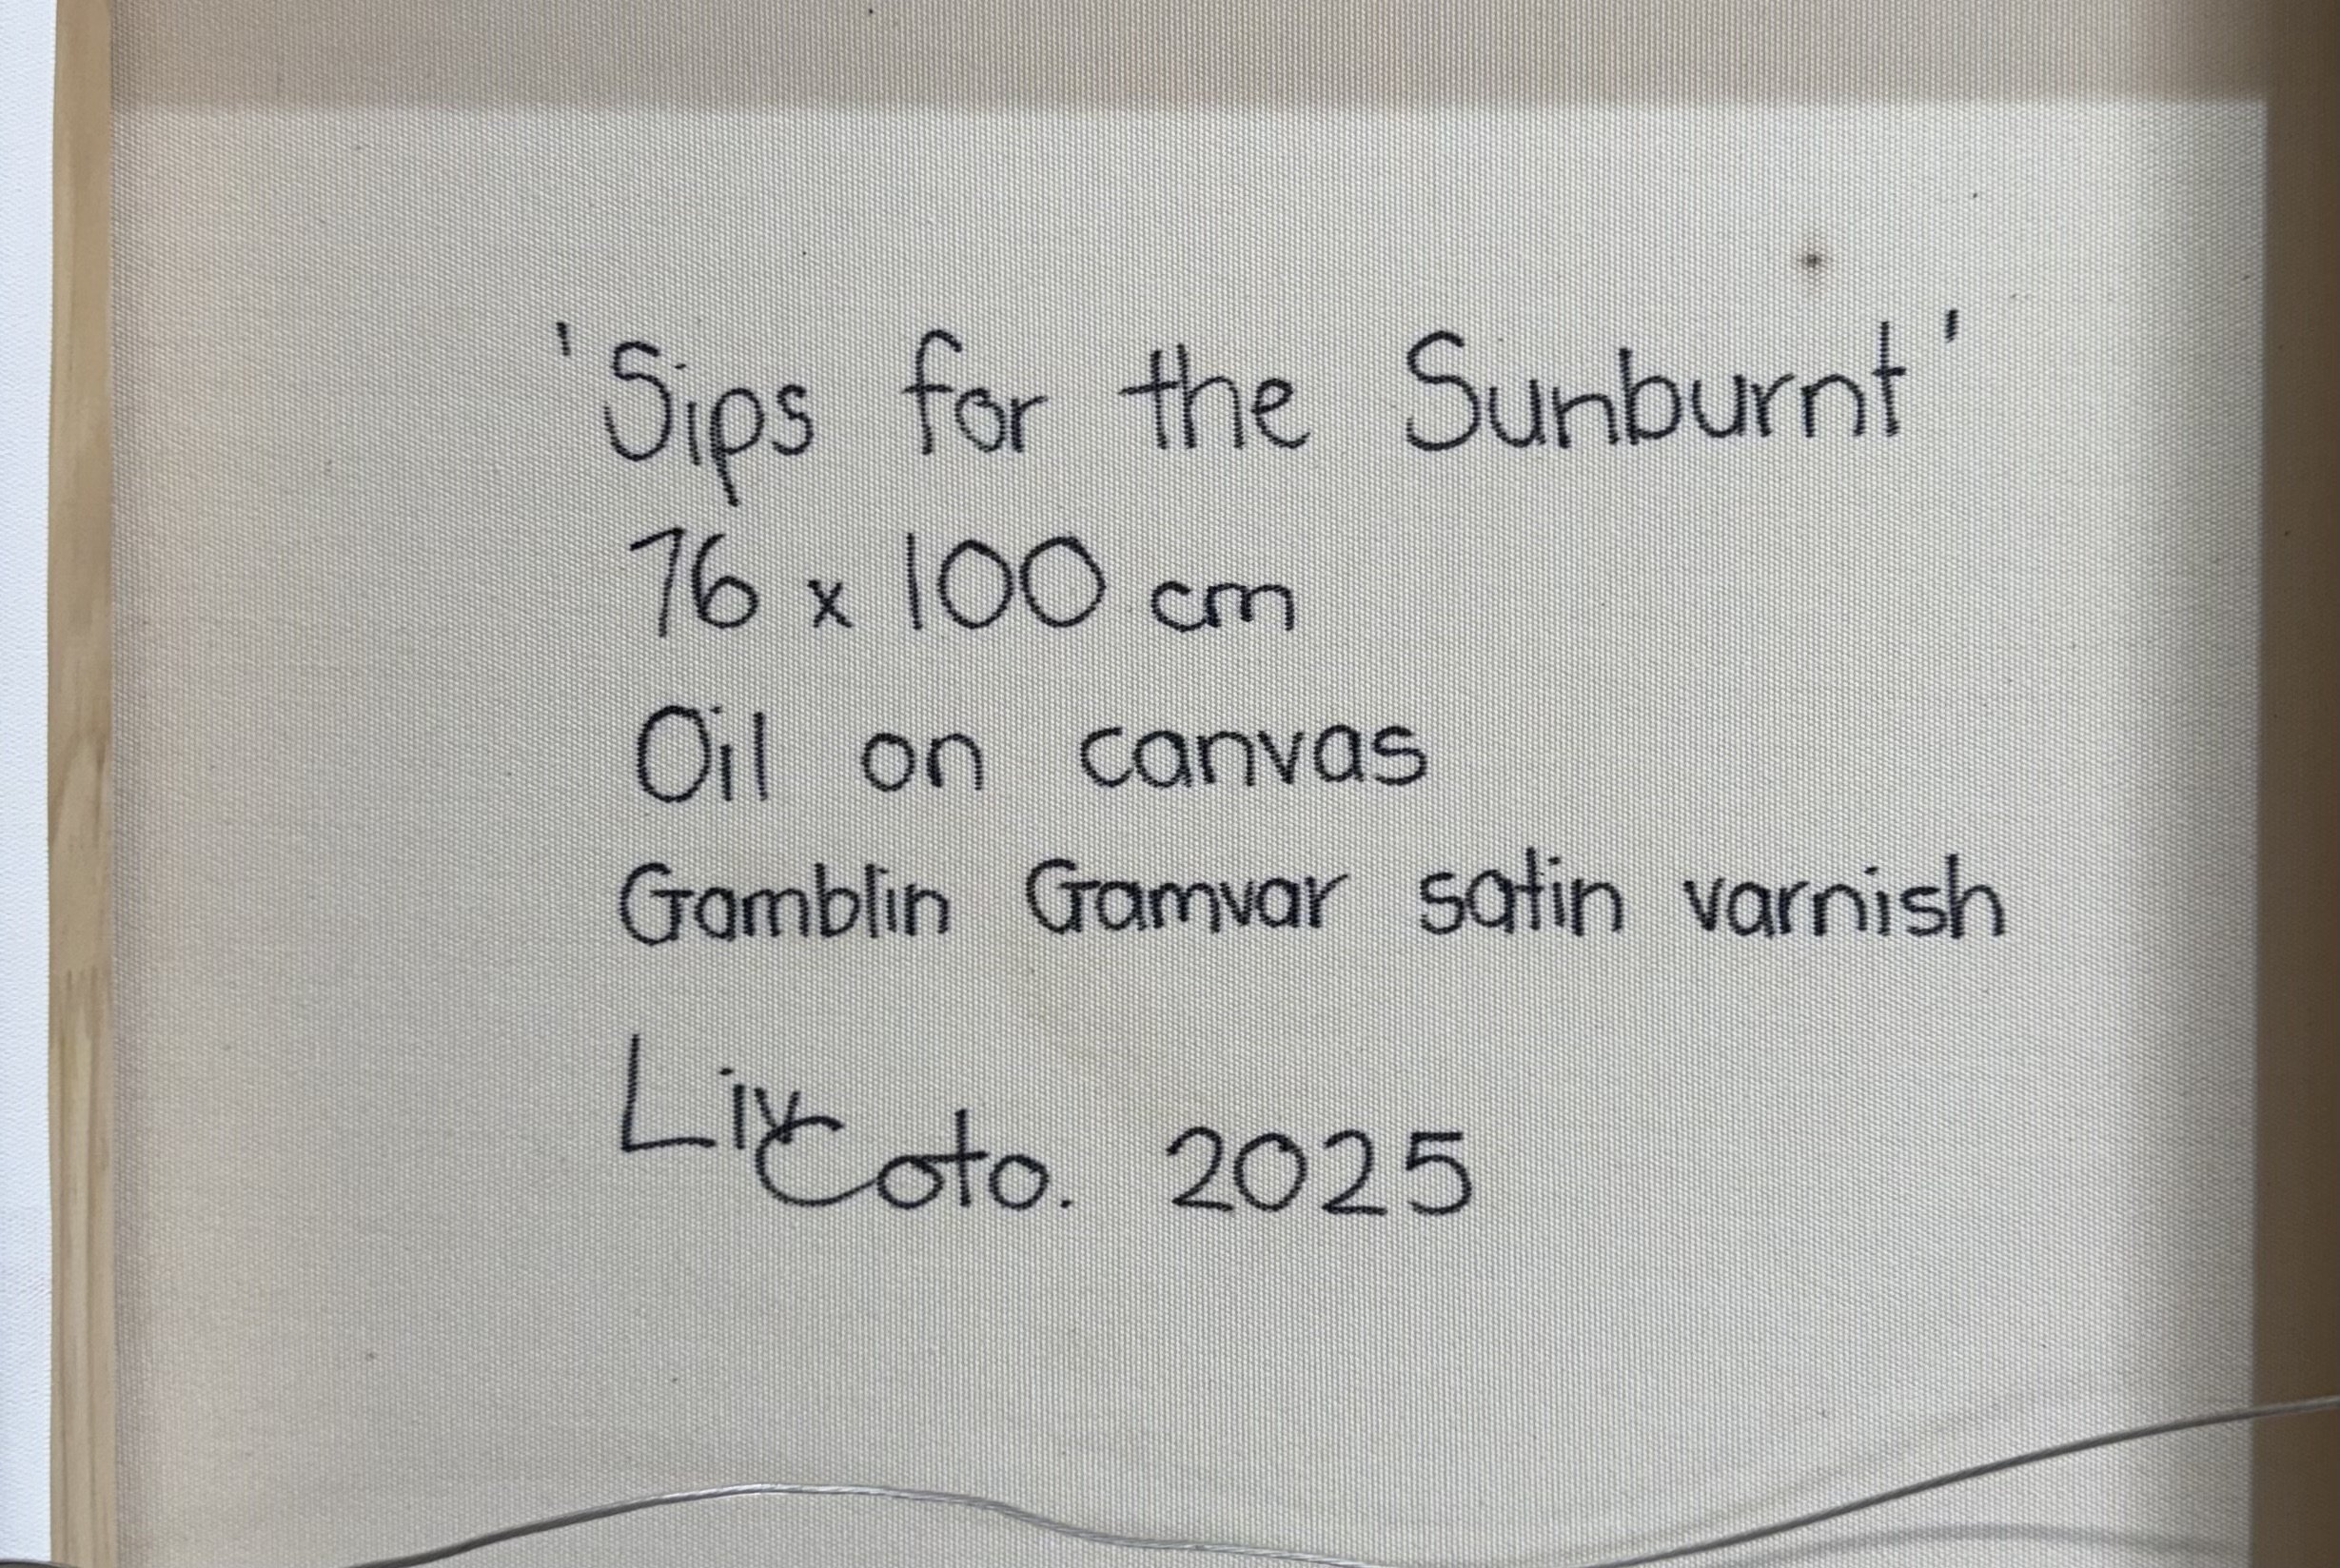 'Sips for the Sunburnt'
76 x 100 cm
Oil on canvas
Gamblin Gamvar satin varnish
Liv Coto. 2025